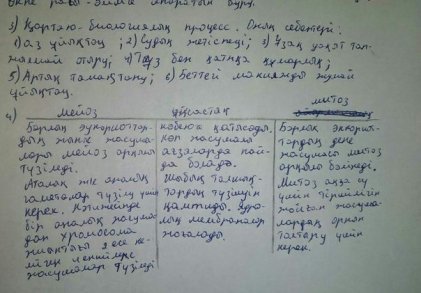 3) Қартаю - биологиялық процесс. Оның себептері:
1) аз ұйықтау; 2) Судың жетіспеуі; 3) Ұзақ уақыт тап-
жылмай отыру; 4) Тұз бен қантқа құмарлық;
5) Артық тамақтану; 6) Беттегі макияжды жумай
ұйықтау.
4)
мейоз
ұқсастық
митоз
Барлық эукариоттар-
дың жыныс жасуша-
лары мейоз арқылы
түзіледі.
Аталық және аналық
гаметалар түзілу үшін
керек. Нәтижесінде
бір аналық жасуша-
дан хромосома
жиынтығы 2 есе ке-
міген
жасушалар түзіледі
көбеюге қатысады,
көп жасушалы
ағзаларда пай-
да болады.
Жыбық талшық-
тардың түзілуін
қамтиды. Ядро-
ның мембраналар
жоғалады.
Барлық эукариот-
тардың дене
жасушасы митоз
арқылы бөлінеді.
Митоз ағза өсу
үшін тіршілігін
жойған жасуша-
лардың орнын
толтыру үшін
керек.